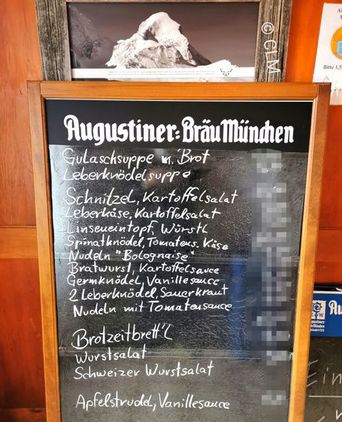 © CLM
Augustiner-Bräu München
Gulaschsuppe m. Brot
Leberknödelsuppe
Schnitzel, Kartoffelsalat
Leberkäse, Kartoffelsalat
Linseneintopf, Würstl
Spinatknödel, Tomatens. Käse
Nudeln "Bolognaise"
Bratwurst, Kartoffelsauce
Germknödel, Vanillesauce
2 Leberknödel, Sauerkraut
Nudeln mit Tomatensauce
Brotzeitbrett'l
Wurstsalat
Schweizer Wurstsalat
Apfelstrudel, Vanillesauce
Bitte
Ein